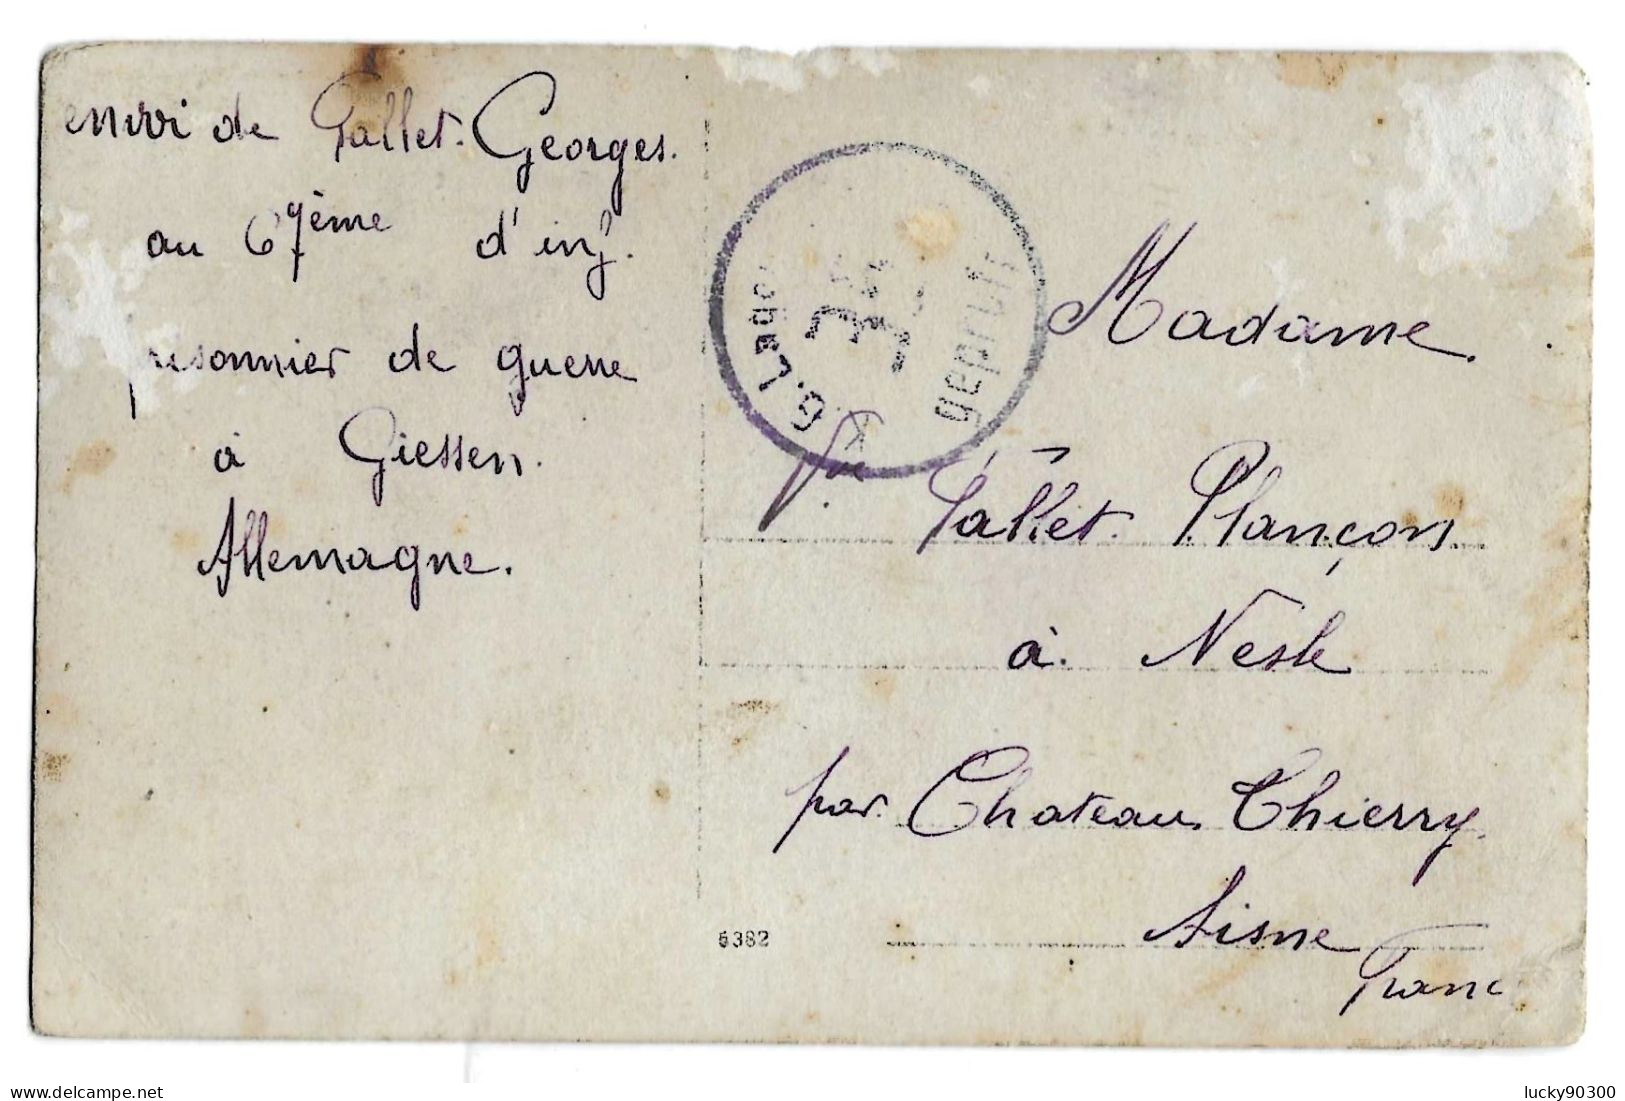 envoi de Pallet. Georges.
au 67ème d'inf.
prisonnier de guerre
à Giessen.
Allemagne.
G. Lager
34
geprüft
Vu
Madame.
Pallet. Plançon
à. Nesle
par. Chateau. Thierry.
Aisne
Franc
5382
www.delcampe.net
lucky90300